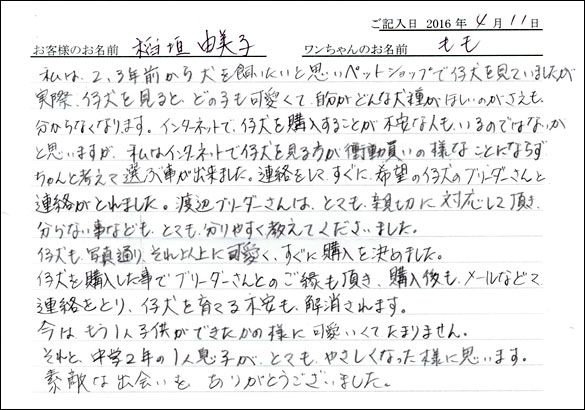 ご記入日 2016年4月11日
お客様のお名前 稲垣 由美子 ワンちゃんのお名前 もも
私は、2、3年前から犬を飼いたいと思いペットショップで仔犬を見ていましたが
実際、仔犬を見ると、どの子も可愛くて、自分がどんな犬種がほしいのかさえも、
分からなくなります。インターネットで、仔犬を購入することが不安な人も、いるのではないか
と思いますが、私はインターネットで仔犬を見る方が衝動買いの様なことにならず
ちゃんと考えて選ぶ事が出来ました。連絡をして、すぐに、希望の仔犬のブリーダーさんと
連絡がとれました。渡辺ブリーダーさんは、とても、親切に対応して頂き、
分らない事なども、とても、分りやすく教えてくださいました。
仔犬も、写真通り、それ以上に可愛く、すぐに購入を決めました。
仔犬を購入した事でブリーダーさんとのご縁も頂き、購入後も、メールなどで
連絡をとり、仔犬を育てる不安も、解消されます。
今は、もう1人子供ができたかの様に可愛いくてたまりません。
それと、中学2年の1人息子が、とても、やさしくなった様に思います。
素敵な出会いを ありがとうございました。